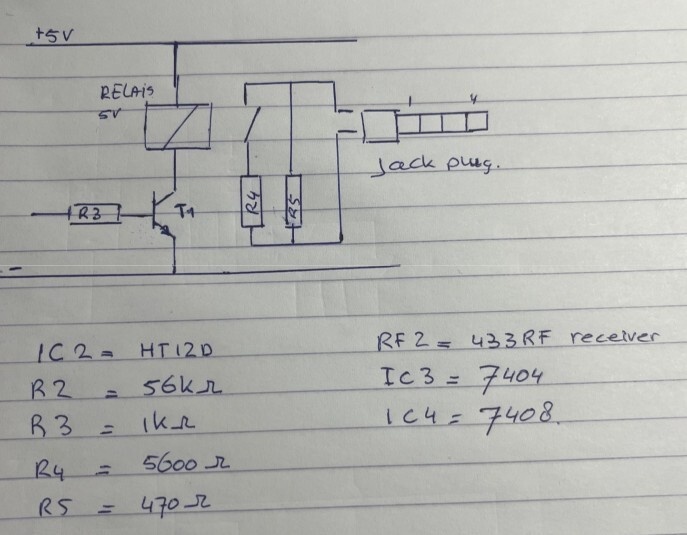 +5V
RELAIS
5V
1 4
Jack plug.
R3
T1
R4
R5
-
IC2 = HT12D
R2 = 56kΩ
R3 = 1kΩ
R4 = 5600Ω
R5 = 470Ω
RF2 = 433RF receiver
IC3 = 7404
IC4 = 7408.